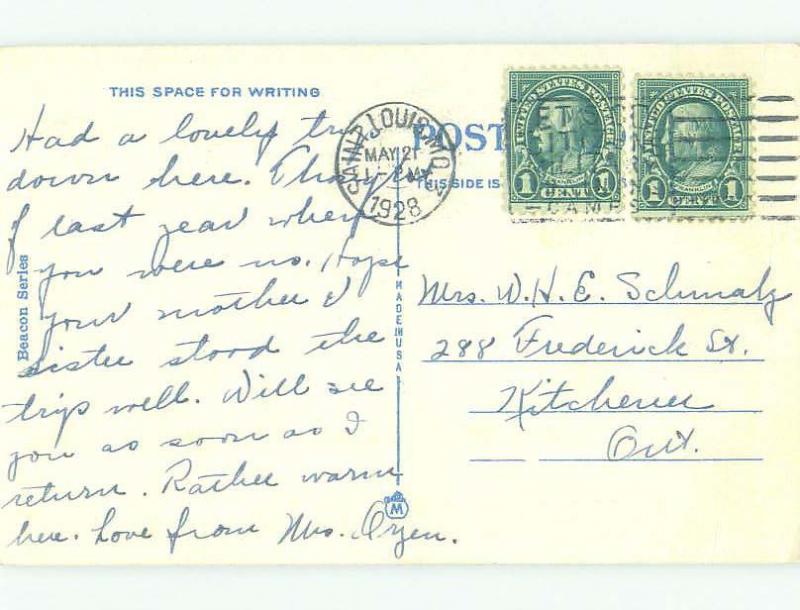 THIS SPACE FOR WRITING
Had a lovely trip
down here. Thought
of last year when
you were no. Hope
your mother &
sister stood the
trip well. Will see
you as soon as I
return. Rather warm
here. Love from Mrs.
Beacon Series
MADE IN USA
M
SAINT LOUIS, MO.
MAY 21
1928
POST
THIS SIDE IS
UNITED STATES POSTAGE
FRANKLIN
1 CENT 1
UNITED STATES POSTAGE
FRANKLIN
1 CENT 1
Mrs. W. H. E. Schmalz
288 Frederick St.
Kitchener
Ont.